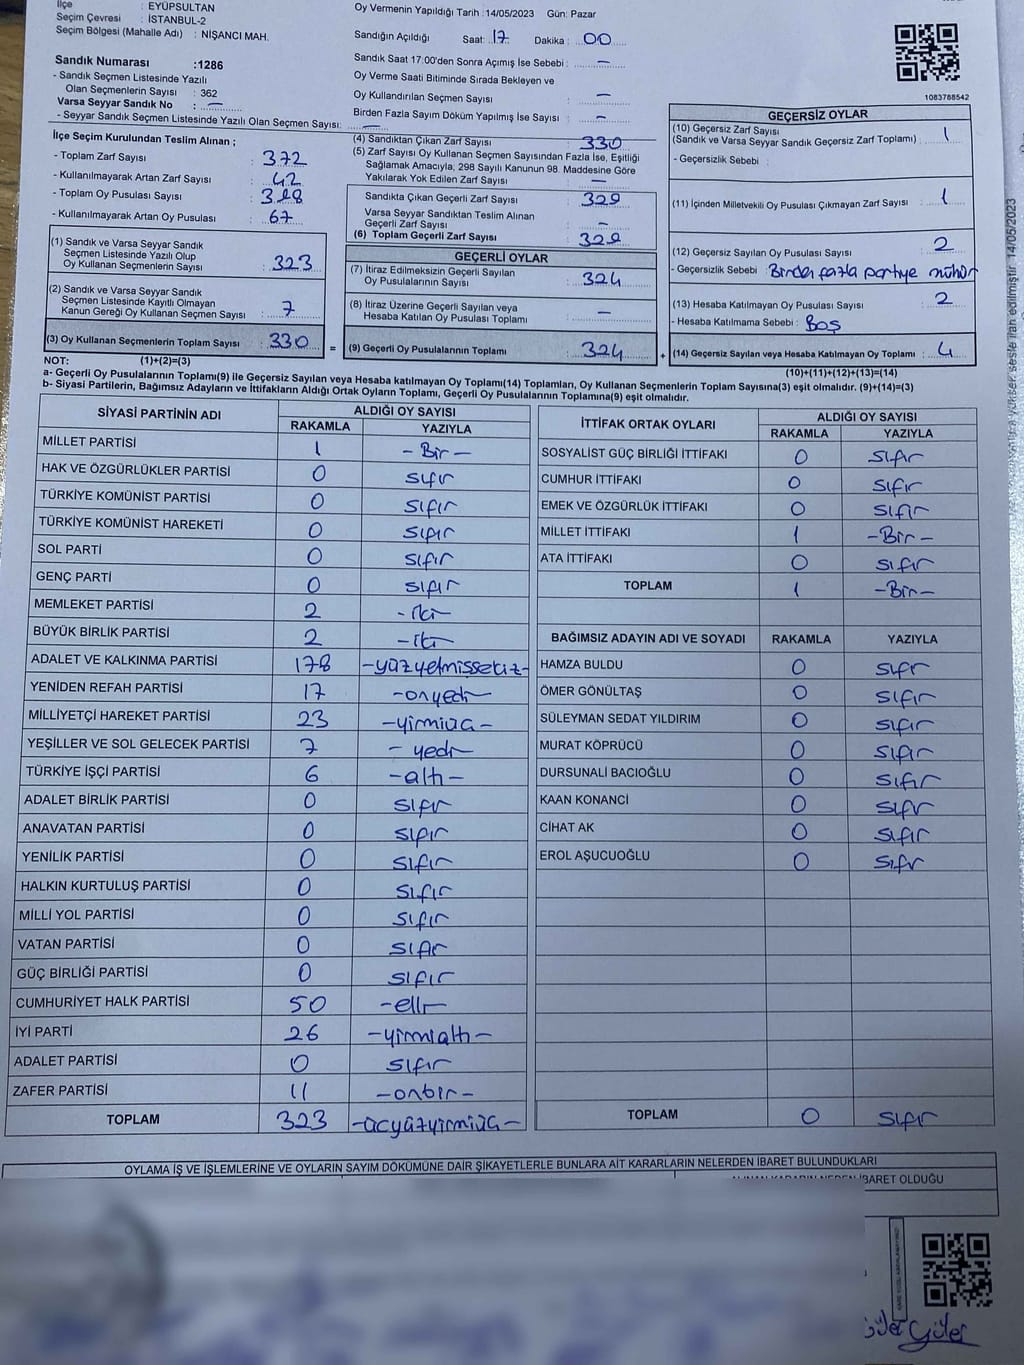 İlçe : EYÜPSULTAN
Seçim Çevresi : İSTANBUL-2
Seçim Bölgesi (Mahalle Adı) : NİŞANCI MAH.
Sandık Numarası :1286
- Sandık Seçmen Listesinde Yazılı
Olan Seçmenlerin Sayısı : 362
Varsa Seyyar Sandık No : —
- Seyyar Sandık Seçmen Listesinde Yazılı Olan Seçmen Sayısı: —
Oy Vermenin Yapıldığı Tarih : 14/05/2023 Gün: Pazar
Sandığın Açıldığı Saat: 17 Dakika : 00
Sandık Saat 17:00'den Sonra Açımış İse Sebebi : —
Oy Verme Saati Bitiminde Sırada Bekleyen ve
Oy Kullandırılan Seçmen Sayısı : —
Birden Fazla Sayım Döküm Yapılmış İse Sayısı : —
1083788542
İlçe Seçim Kurulundan Teslim Alınan ;
- Toplam Zarf Sayısı : 372
- Kullanılmayarak Artan Zarf Sayısı : 42
- Toplam Oy Pusulası Sayısı :
- Kullanılmayarak Artan Oy Pusulası : 67
(1) Sandık ve Varsa Seyyar Sandık
Seçmen Listesinde Yazılı Olup
Oy Kullanan Seçmenlerin Sayısı : 323
(2) Sandık ve Varsa Seyyar Sandık
Seçmen Listesinde Kayıtlı Olmayan
Kanun Gereği Oy Kullanan Seçmen Sayısı : 7
(3) Oy Kullanan Seçmenlerin Toplam Sayısı : 330
(4) Sandıktan Çıkan Zarf Sayısı : 330
(5) Zarf Sayısı Oy Kullanan Seçmen Sayısından Fazla İse, Eşitliği
Sağlamak Amacıyla, 298 Sayılı Kanunun 98. Maddesine Göre
Yakılarak Yok Edilen Zarf Sayısı : —
Sandıkta Çıkan Geçerli Zarf Sayısı : 329
Varsa Seyyar Sandıktan Teslim Alınan
Geçerli Zarf Sayısı : —
(6) Toplam Geçerli Zarf Sayısı : 329
GEÇERLİ OYLAR
(7) İtiraz Edilmeksizin Geçerli Sayılan
Oy Pusulalarının Sayısı : 324
(8) İtiraz Üzerine Geçerli Sayılan veya
Hesaba Katılan Oy Pusulası Toplamı : —
= (9) Geçerli Oy Pusulalarının Toplamı : 324
GEÇERSİZ OYLAR
(10) Geçersiz Zarf Sayısı
(Sandık ve Varsa Seyyar Sandık Geçersiz Zarf Toplamı) : 1
- Geçersizlik Sebebi :
(11) İçinden Milletvekili Oy Pusulası Çıkmayan Zarf Sayısı : 1
(12) Geçersiz Sayılan Oy Pusulası Sayısı : 2
- Geçersizlik Sebebi : Birden fazla partiye mühür
(13) Hesaba Katılmayan Oy Pusulası Sayısı : 2
- Hesaba Katılmama Sebebi : Boş
+ (14) Geçersiz Sayılan veya Hesaba Katılmayan Oy Toplamı : 4
NOT: (1)+(2)=(3)
(10)+(11)+(12)+(13)=(14)
a- Geçerli Oy Pusulalarının Toplamı(9) ile Geçersiz Sayılan veya Hesaba katılmayan Oy Toplamı(14) Toplamları, Oy Kullanan Seçmenlerin Toplam Sayısına(3) eşit olmalıdır. (9)+(14)=(3)
b- Siyasi Partilerin, Bağımsız Adayların ve İttifakların Aldığı Ortak Oyların Toplamı, Geçerli Oy Pusulalarının Toplamına(9) eşit olmalıdır.
SİYASİ PARTİNİN ADI ALDIĞI OY SAYISI
RAKAMLA YAZIYLA
MİLLET PARTİSİ 1 - Bir -
HAK VE ÖZGÜRLÜKLER PARTİSİ 0 sıfır
TÜRKİYE KOMÜNİST PARTİSİ 0 sıfır
TÜRKİYE KOMÜNİST HAREKETİ 0 sıfır
SOL PARTİ 0 sıfır
GENÇ PARTİ 0 sıfır
MEMLEKET PARTİSİ 2 - iki -
BÜYÜK BİRLİK PARTİSİ 2 - iki -
ADALET VE KALKINMA PARTİSİ 178 -yüzyetmişsekiz-
YENİDEN REFAH PARTİSİ 17 -onyedi-
MİLLİYETÇİ HAREKET PARTİSİ 23 -yirmiüç-
YEŞİLLER VE SOL GELECEK PARTİSİ 7 - yedi-
TÜRKİYE İŞÇİ PARTİSİ 6 -altı-
ADALET BİRLİK PARTİSİ 0 sıfır
ANAVATAN PARTİSİ 0 sıfır
YENİLİK PARTİSİ 0 sıfır
HALKIN KURTULUŞ PARTİSİ 0 sıfır
MİLLİ YOL PARTİSİ 0 sıfır
VATAN PARTİSİ 0 sıfır
GÜÇ BİRLİĞİ PARTİSİ 0 sıfır
CUMHURİYET HALK PARTİSİ 50 -elli-
İYİ PARTİ 26 -yirmialtı-
ADALET PARTİSİ 0 sıfır
ZAFER PARTİSİ 11 -onbir-
TOPLAM 323 -üçyüzyirmiüç-
İTTİFAK ORTAK OYLARI ALDIĞI OY SAYISI
RAKAMLA YAZIYLA
SOSYALİST GÜÇ BİRLİĞİ İTTİFAKI 0 sıfır
CUMHUR İTTİFAKI 0 sıfır
EMEK VE ÖZGÜRLÜK İTTİFAKI 0 sıfır
MİLLET İTTİFAKI 1 -Bir-
ATA İTTİFAKI 0 sıfır
TOPLAM 1 -Bir-
BAĞIMSIZ ADAYIN ADI VE SOYADI RAKAMLA YAZIYLA
HAMZA BULDU 0 sıfır
ÖMER GÖNÜLTAŞ 0 sıfır
SÜLEYMAN SEDAT YILDIRIM 0 sıfır
MURAT KÖPRÜCÜ 0 sıfır
DURSUNALİ BACIOĞLU 0 sıfır
KAAN KONANCİ 0 sıfır
CİHAT AK 0 sıfır
EROL AŞUCUOĞLU 0 sıfır
TOPLAM 0 sıfır
OYLAMA İŞ VE İŞLEMLERİNE VE OYLARIN SAYIM DÖKÜMÜNE DAİR ŞİKAYETLERLE BUNLARA AİT KARARLARIN NELERDEN İBARET BULUNDUKLARI
OLDUĞU
Güler
yüksek sesle ilan edilmiştir. 14/05/2023